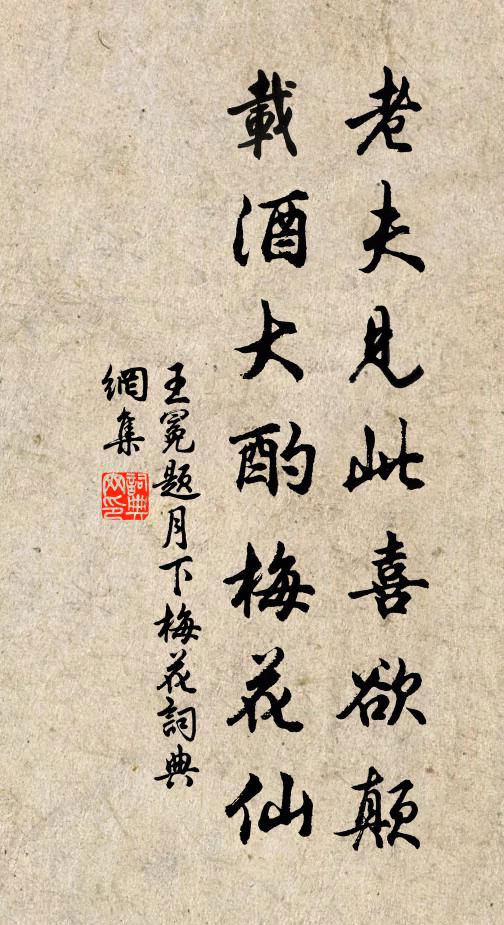 老夫見此喜欲顛
載酒大酌梅花仙
王冕題月下梅花詞典
網集
詞典
網印